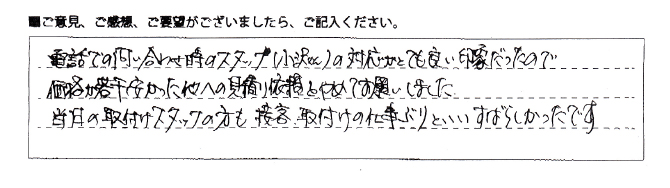 ■ご意見、ご感想、ご要望がございましたら、ご記入ください。
電話での問い合わせ時のスタッフ(小沢さん)の対応がとても良い印象だったので
価格が若干安かった他への見積り依頼をやめてお願いしました
当日の取付けスタッフの方も接客、取付けの仕事ぶりといいすばらしかったです